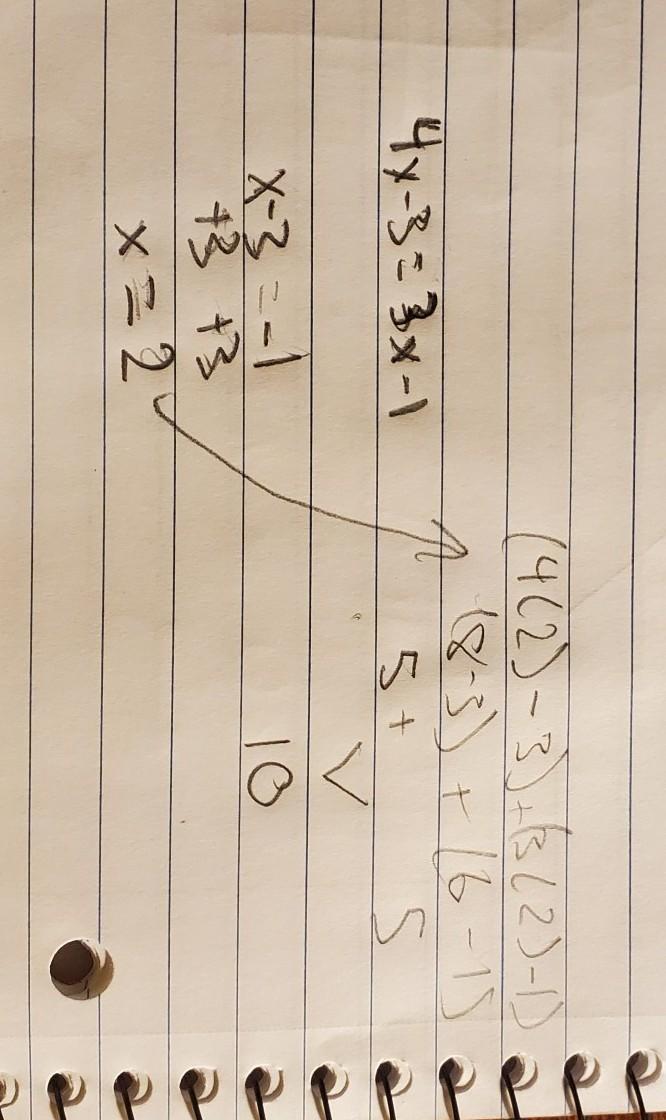 4x-3=3x-1
x-3=-1
+3 +3
x=2
(4(2)-3)+(3(2)-1)
(8-3)+(6-1)
5+ 5
V
10